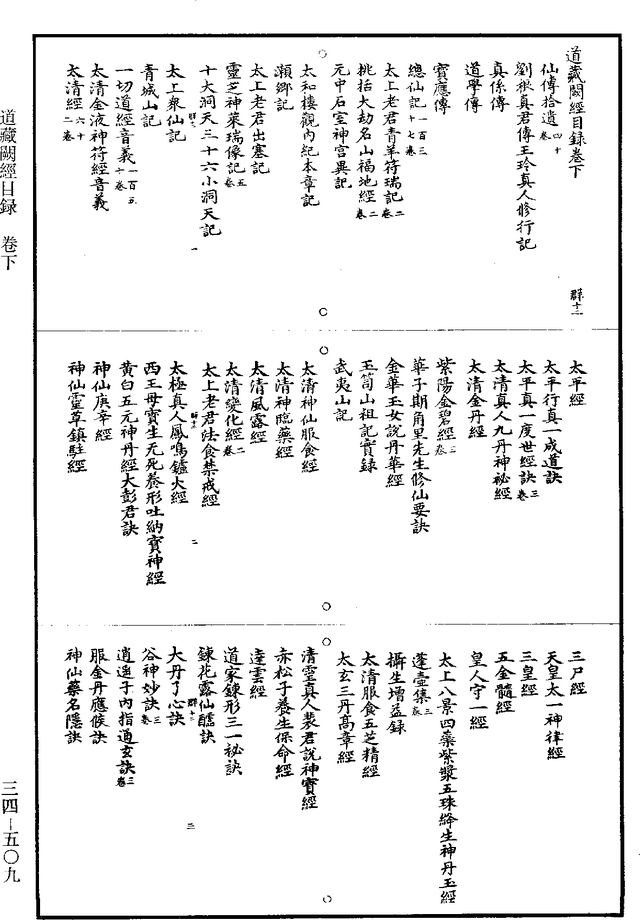 道藏闕經目録卷下
仙傳拾遺四十卷
劉根真君傳王玲真人修行記
真係傳
道學傳
寶應傳
總仙記一百三十七卷
太上老君青羊符瑞記二卷
桃括大劫名山福池經二卷
元中石室神宫異記
太和樓觀內紀本章記
瀨鄉記
太上老君出塞記
靈芝神藥瑞像記五卷
十大洞天三十六小洞天記
太上衆仙記
青城山記
一切道經音義一百五十卷
太清金液神符經音義
太清經六十二卷
群十二
一
太平經
太平行真一成道訣
太平真一度世經訣三卷
太清真人九丹神祕經
太清金丹經
紫陽金碧經三卷
華子期角里先生修仙要訣
金華玉女説丹華經
玉笥山祖記實録
武夷山記
太清神仙服食經
太清神臨藥經
太清風露經
太清變化經二卷
太上老君法食禁戒經
太極真人鳳鳴鑪火經
西王母寶生无死養形吐納寶神經
黄白五元神丹經大彭君訣
神仙庚辛經
神仙靈草鎮駐經
二
三尸經
天皇太一神律經
三皇經
五金髓經
皇人守一經
太上八景四藥紫漿五珠絳生神丹玉經
蓬壺集三卷
攝生增益録
太清服食五芝精經
太玄三丹髙章經
清靈真人裴君説神寶經
赤松子養生保命經
達雲經
道家錬形三一祕訣
錬花露仙醋訣
大丹了心訣
谷神妙訣三卷
逍遥子內指通玄訣三卷
服金丹應候訣
神仙藥名隱訣
群十二
三
道藏闕經目録 卷下
三四—五〇九